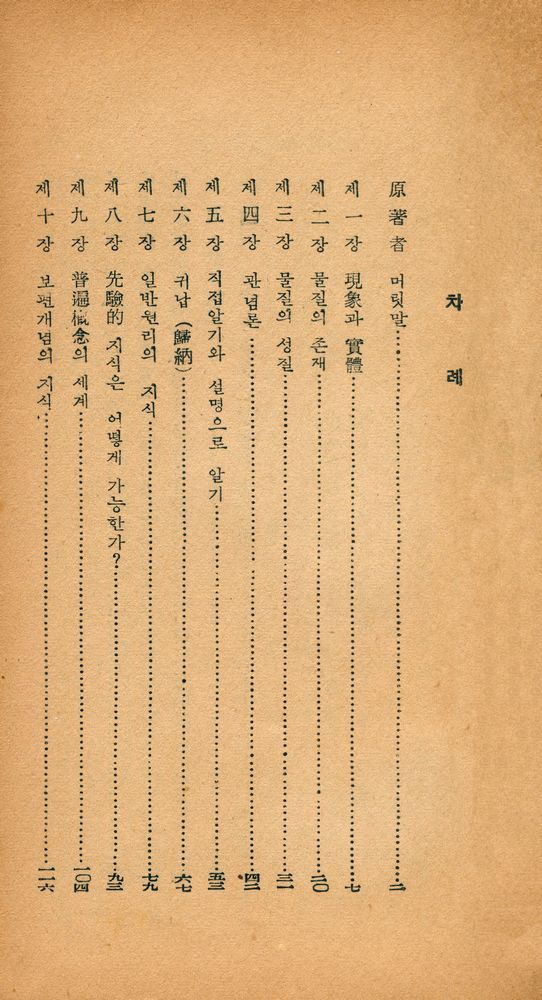 차례
原著者 머릿말 二
제一장 現象과 實體 七
제二장 물질의 존재 二〇
제三장 물질의 성질 三一
제四장 관념론 四二
제五장 직접알기와 설명으로 알기 五三
제六장 귀납 (歸納) 六七
제七장 일반원리의 지식 七九
제八장 先驗的 지식은 어떻게 가능한가? 九三
제九장 普遍槪念의 세계 一〇四
제十장 보편개념의 지식 一一六